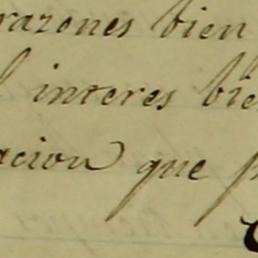 razones bien
interes bie
acion que p